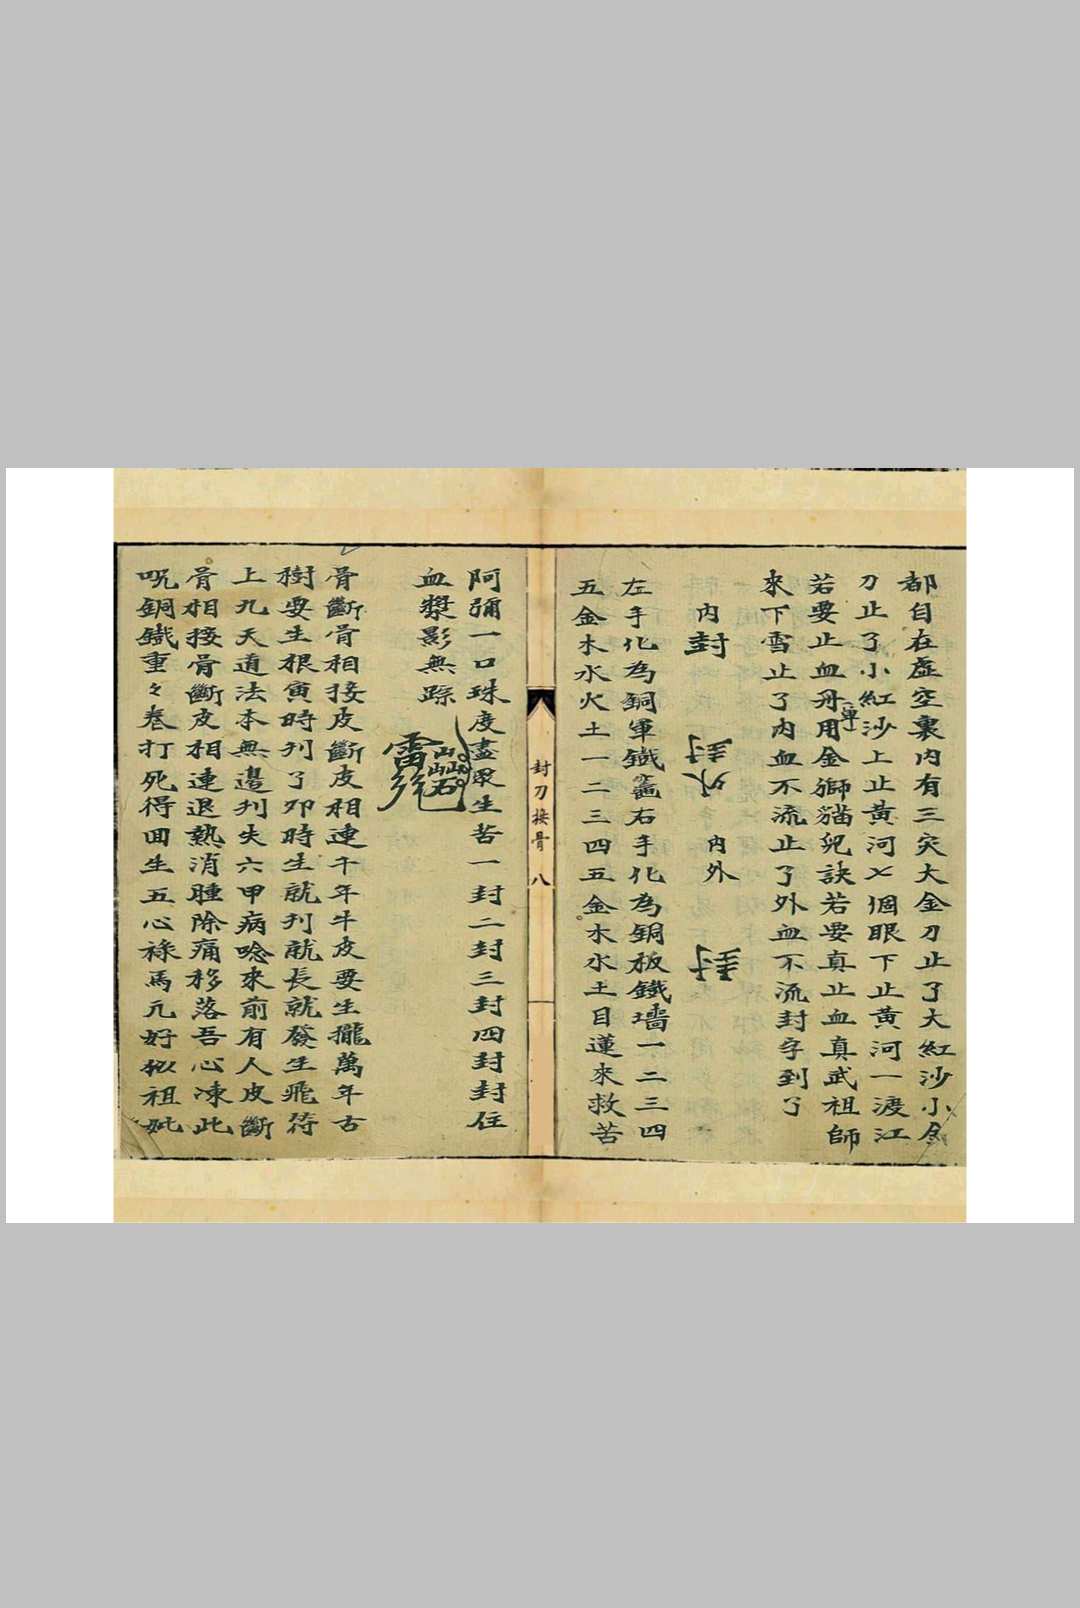 都自在虛空裏内有三灾大金刀止了大紅沙小金
刀止了小紅沙上止黃河七個眼下止黃河一渡江
若要止血丹單用金獅猫兒訣若要真止血真武祖師
來下雪止了内血不流止了外血不流封字到了
内封
封外
内外
封
左手化為銅軍鐵籠右手化為銅板鐵墻一二三四
五金木水火土一二三四五金木水土目蓮來救苦
封刀接骨 八
阿彌一口珠度盡眾生苦一封二封三封四封封住
血漿影無踪
骨斷骨相接皮斷皮相連千年牛皮要生攏萬年古
樹要生根寅時刋了夘時生就刋就長就發生飛符
上九天道法本無邊刋失六甲病唸來前有人皮斷
骨相接骨斷皮相連退熱消腫除痛移落吾心凍此
呪銅鐵重々卷打死得回生五心祿馬元好似祖妣